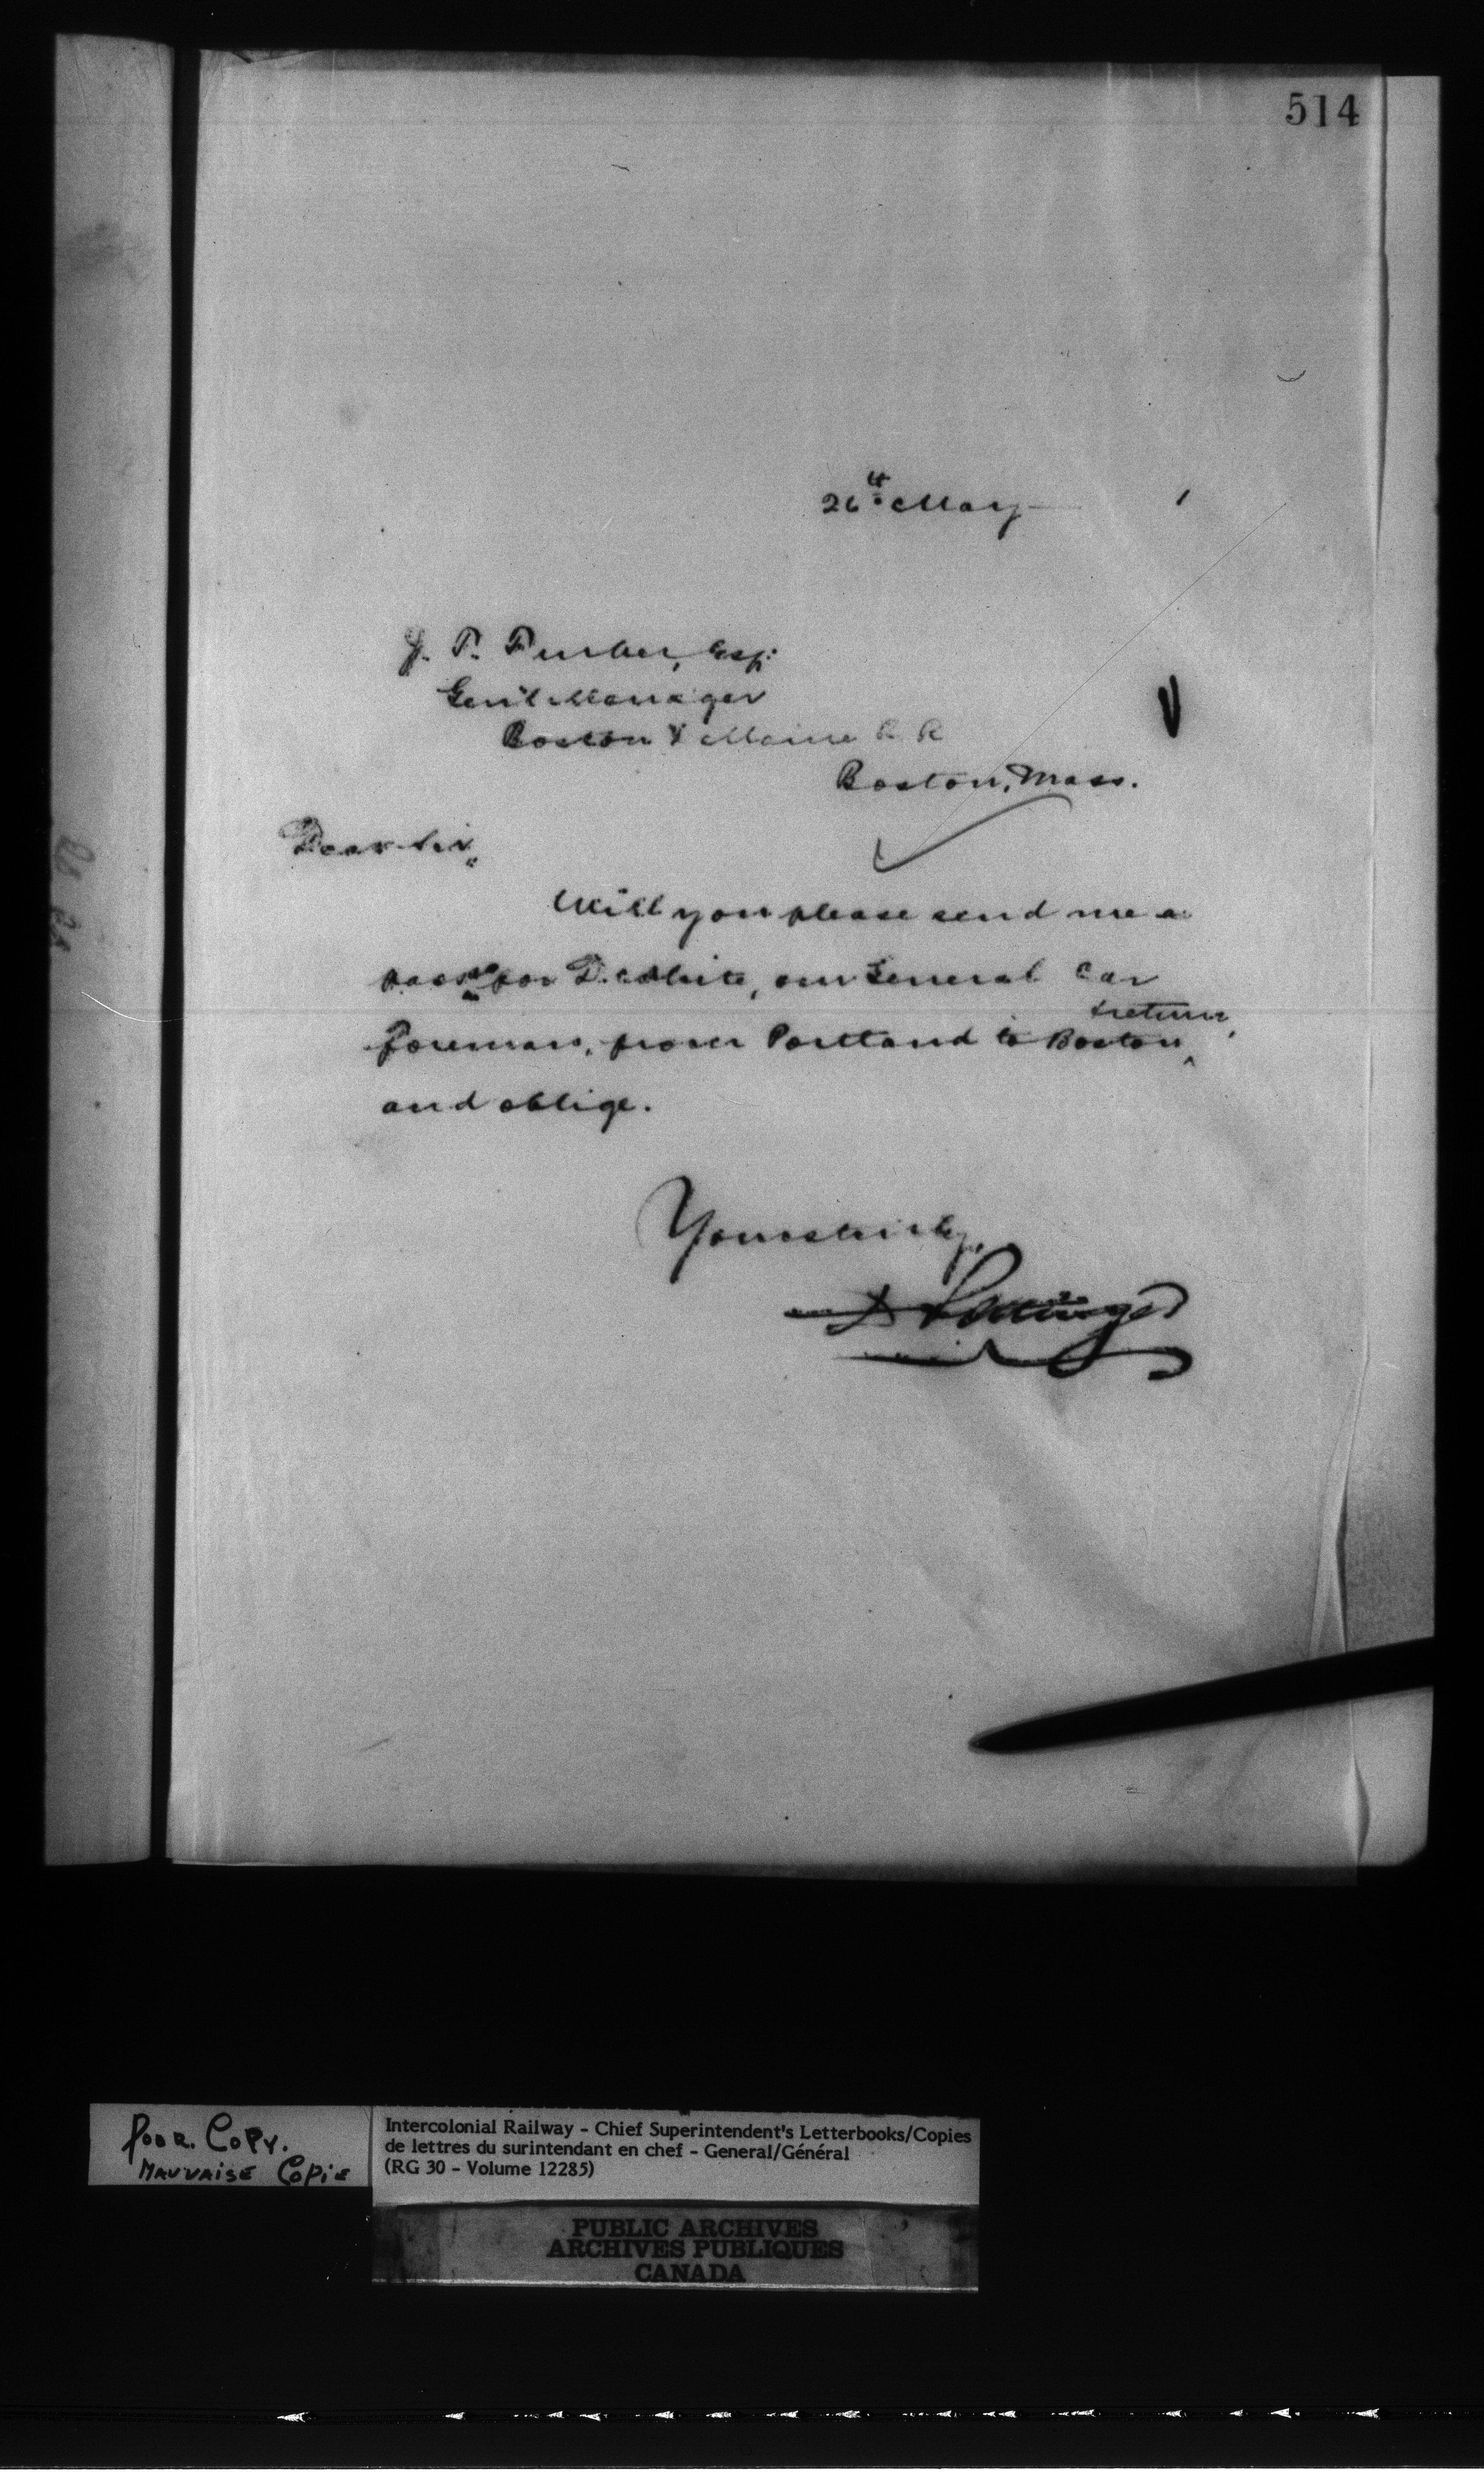 514
26th May
J. T. Furber, Esq:
Gen'l Manager
Boston & Maine R R
Boston, Mass.
Dear Sir,
Will you please send me a
pass for D. White, our General Car
& return,
Foreman, from Portland to Boston
and oblige.
Yours truly,
D Pottinger
POOR. COPY.
MAUVAISE COPIE
Intercolonial Railway - Chief Superintendent's Letterbooks/Copies
de lettres du surintendant en chef - General/Général
(RG 30 - Volume 12285)
PUBLIC ARCHIVES
ARCHIVES PUBLIQUES
CANADA